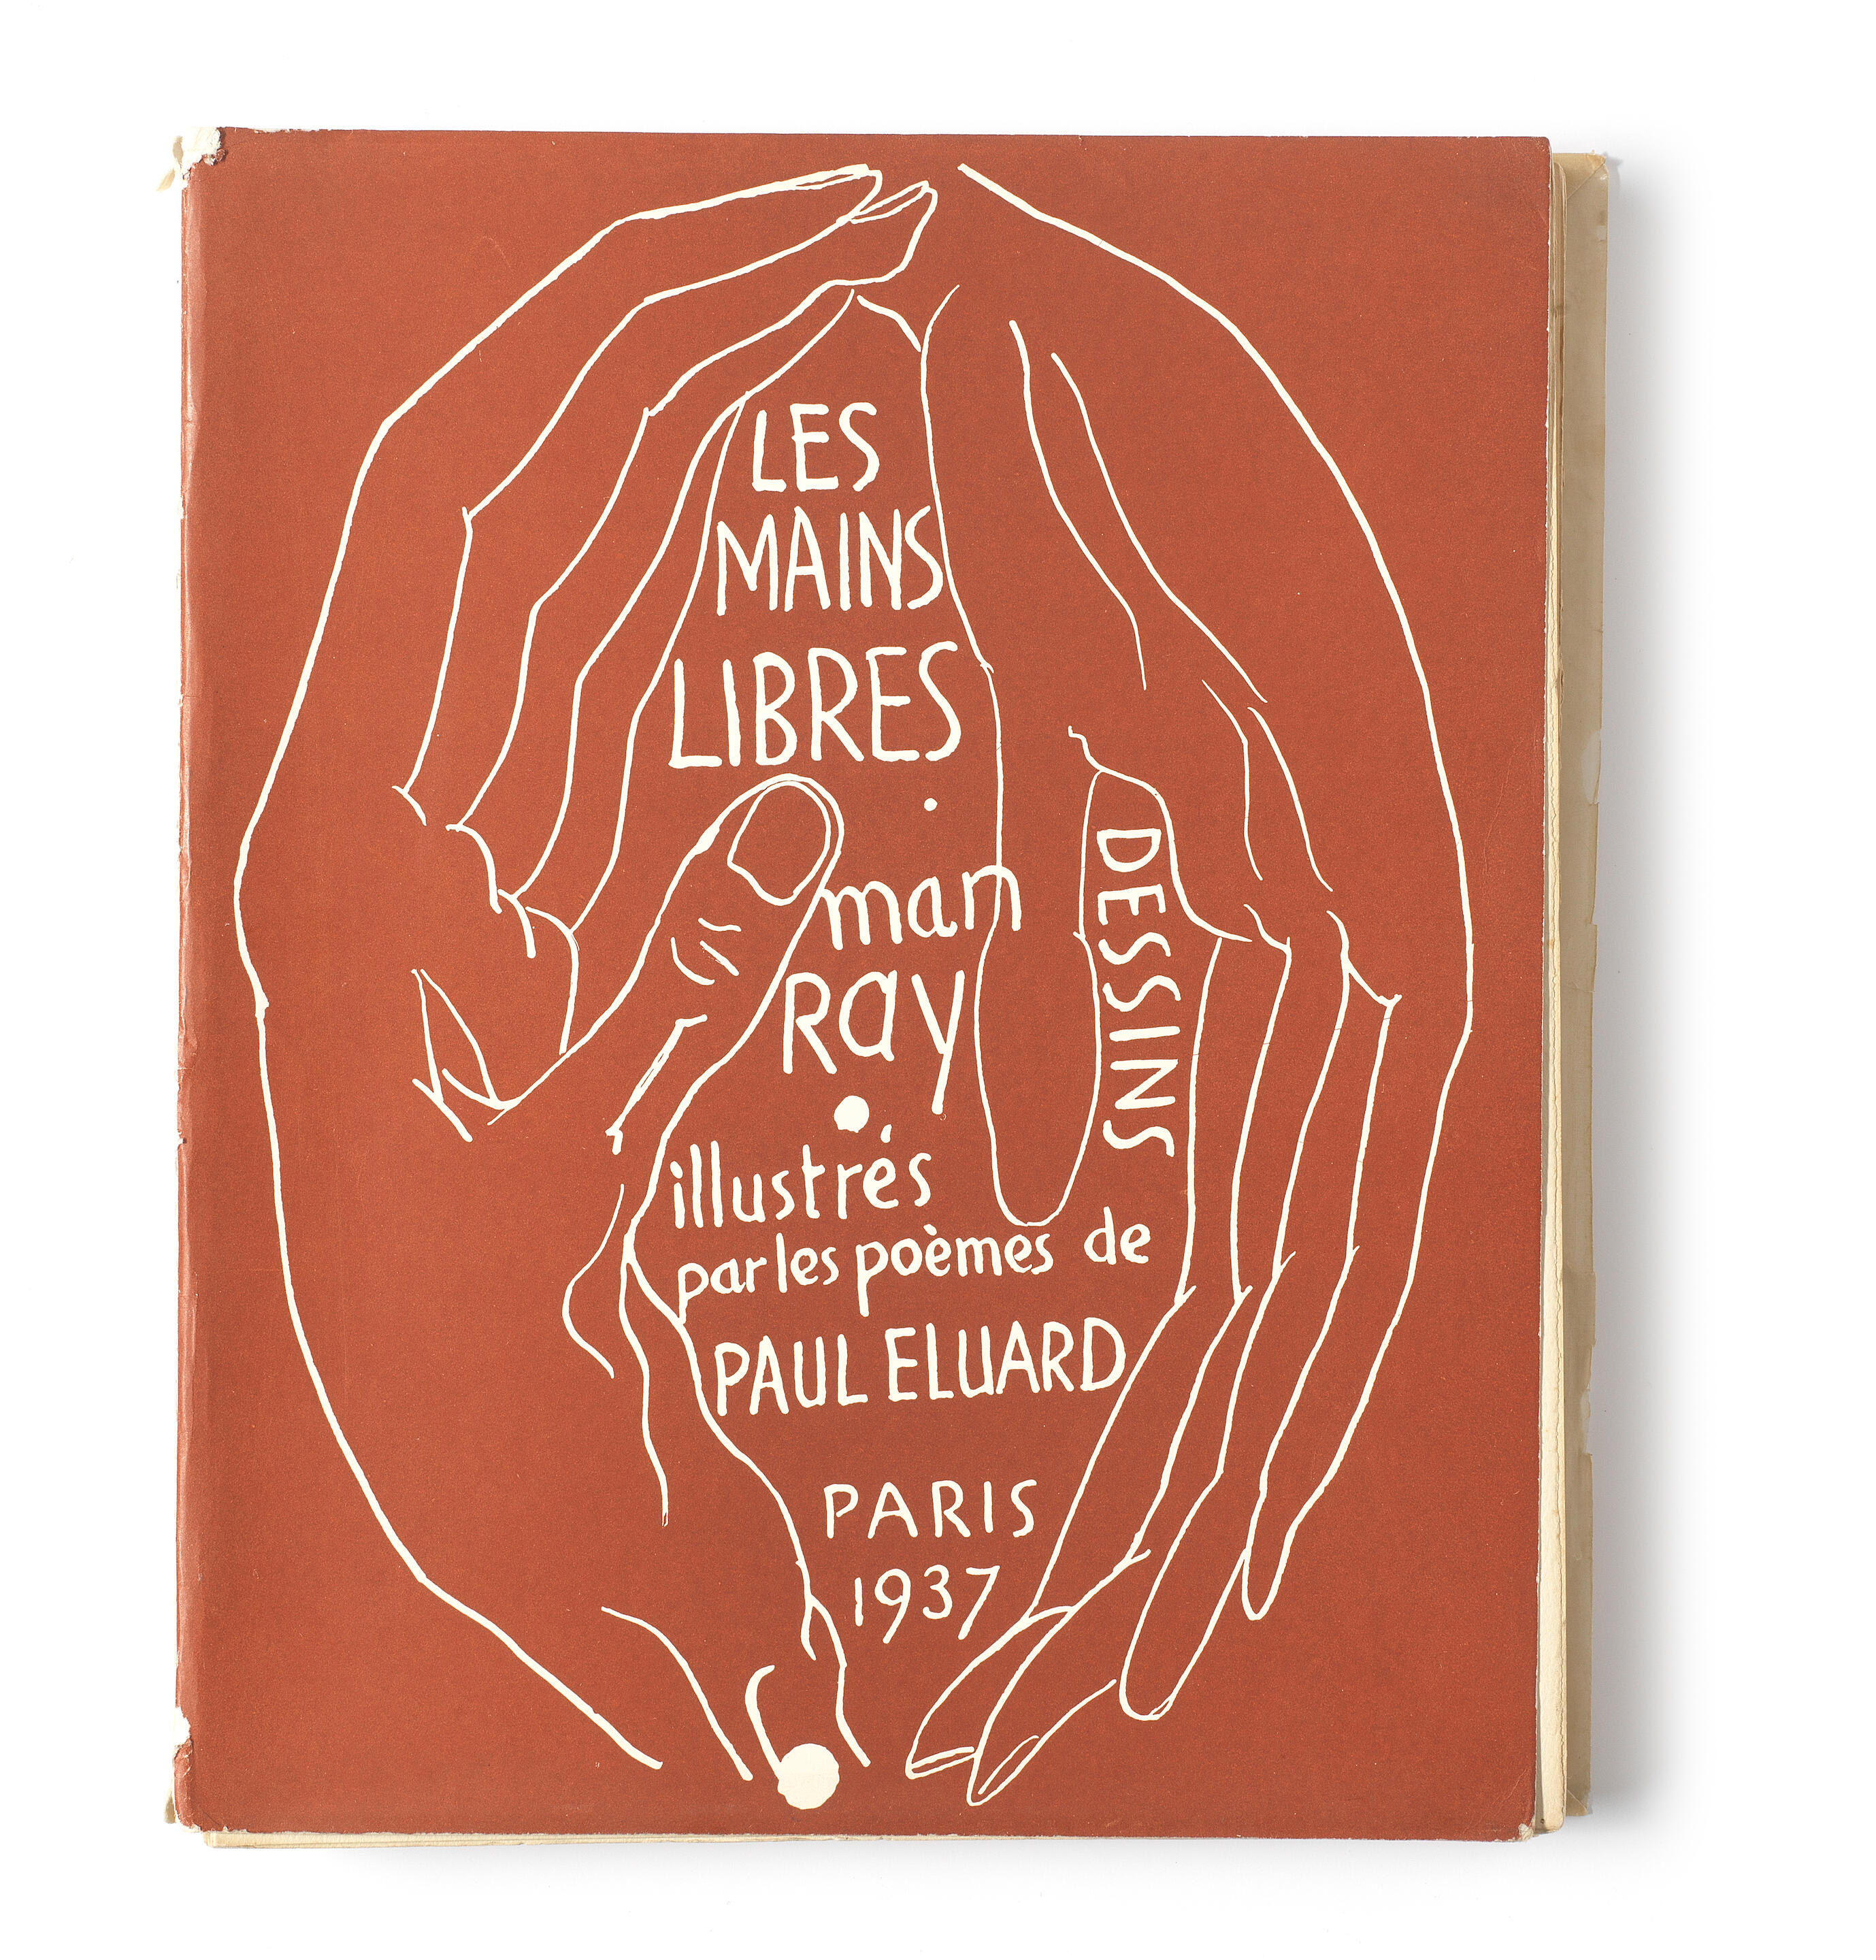 LES
MAINS
LIBRES
man
Ray
DESSINS
illustrés
par les poèmes de
PAUL ELUARD
PARIS
1937